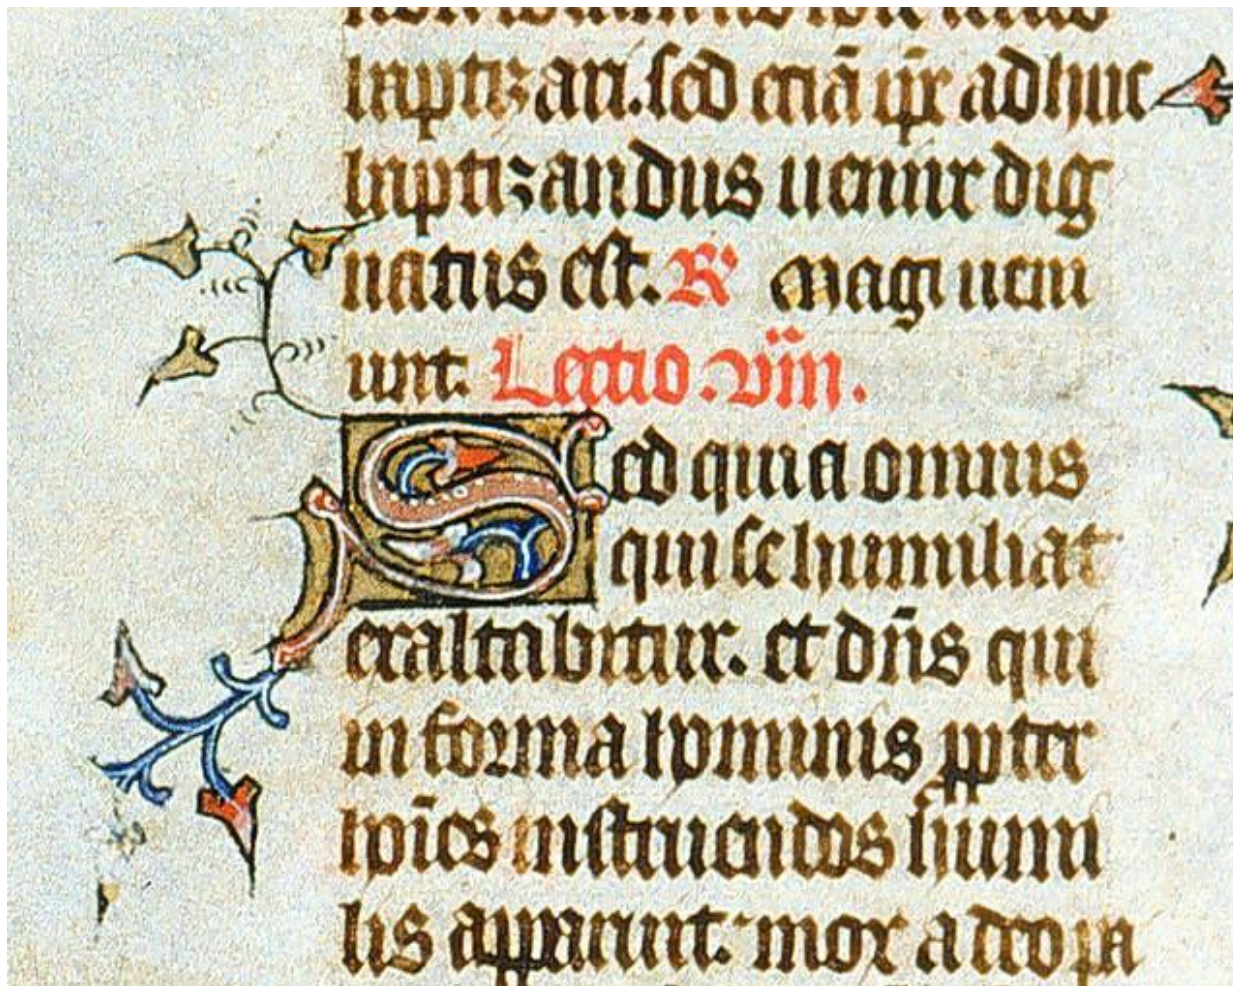 baptizari. sed etiā xp̄c adhuc
baptizandus uenire dig
natus est. R' Magi ueni
unt. Lectio .viii.
Sed quia omnis
qui se humiliat
exaltabitur. et dn̄s qui
in forma hominis ꝓpter
hoīes instruendos humi
lis apparuit. mox a deo pa